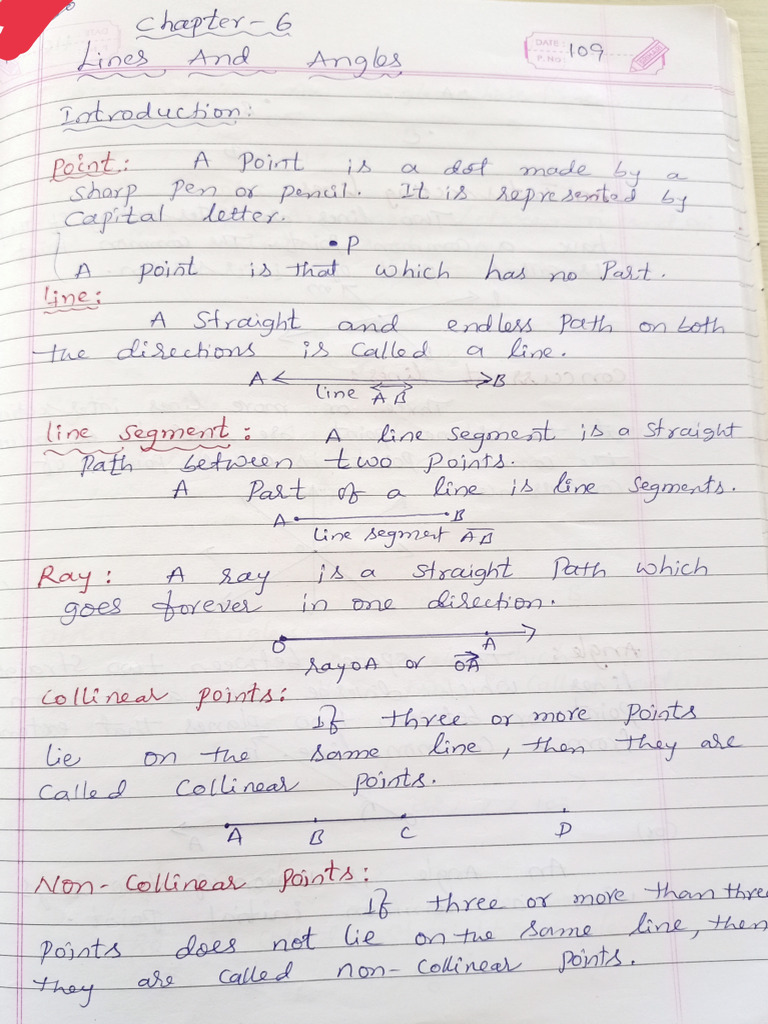 Chapter - 6
Lines And Angles
DATE: 109
P.NO:
Introduction:
Point: A Point is a dot made by a
sharp pen or pencil. It is represented by
Capital letter.
• P
A point is that which has no Part.
line:
A Straight and endless Path on both
the directions is called a line.
A B
line AB
line segment: A line segment is a straight
Path between two points.
A Part of a line is line segments.
A B
line segment AB
Ray: A ray is a straight Path which
goes forever in one direction.
O A
ray OA or OA
Collinear points:
If three or more points
lie on the same line, then they are
called collinear points.
A B C D
Non-Collinear points:
If three or more than three
points does not lie on the same line, then
they are called non-collinear points.